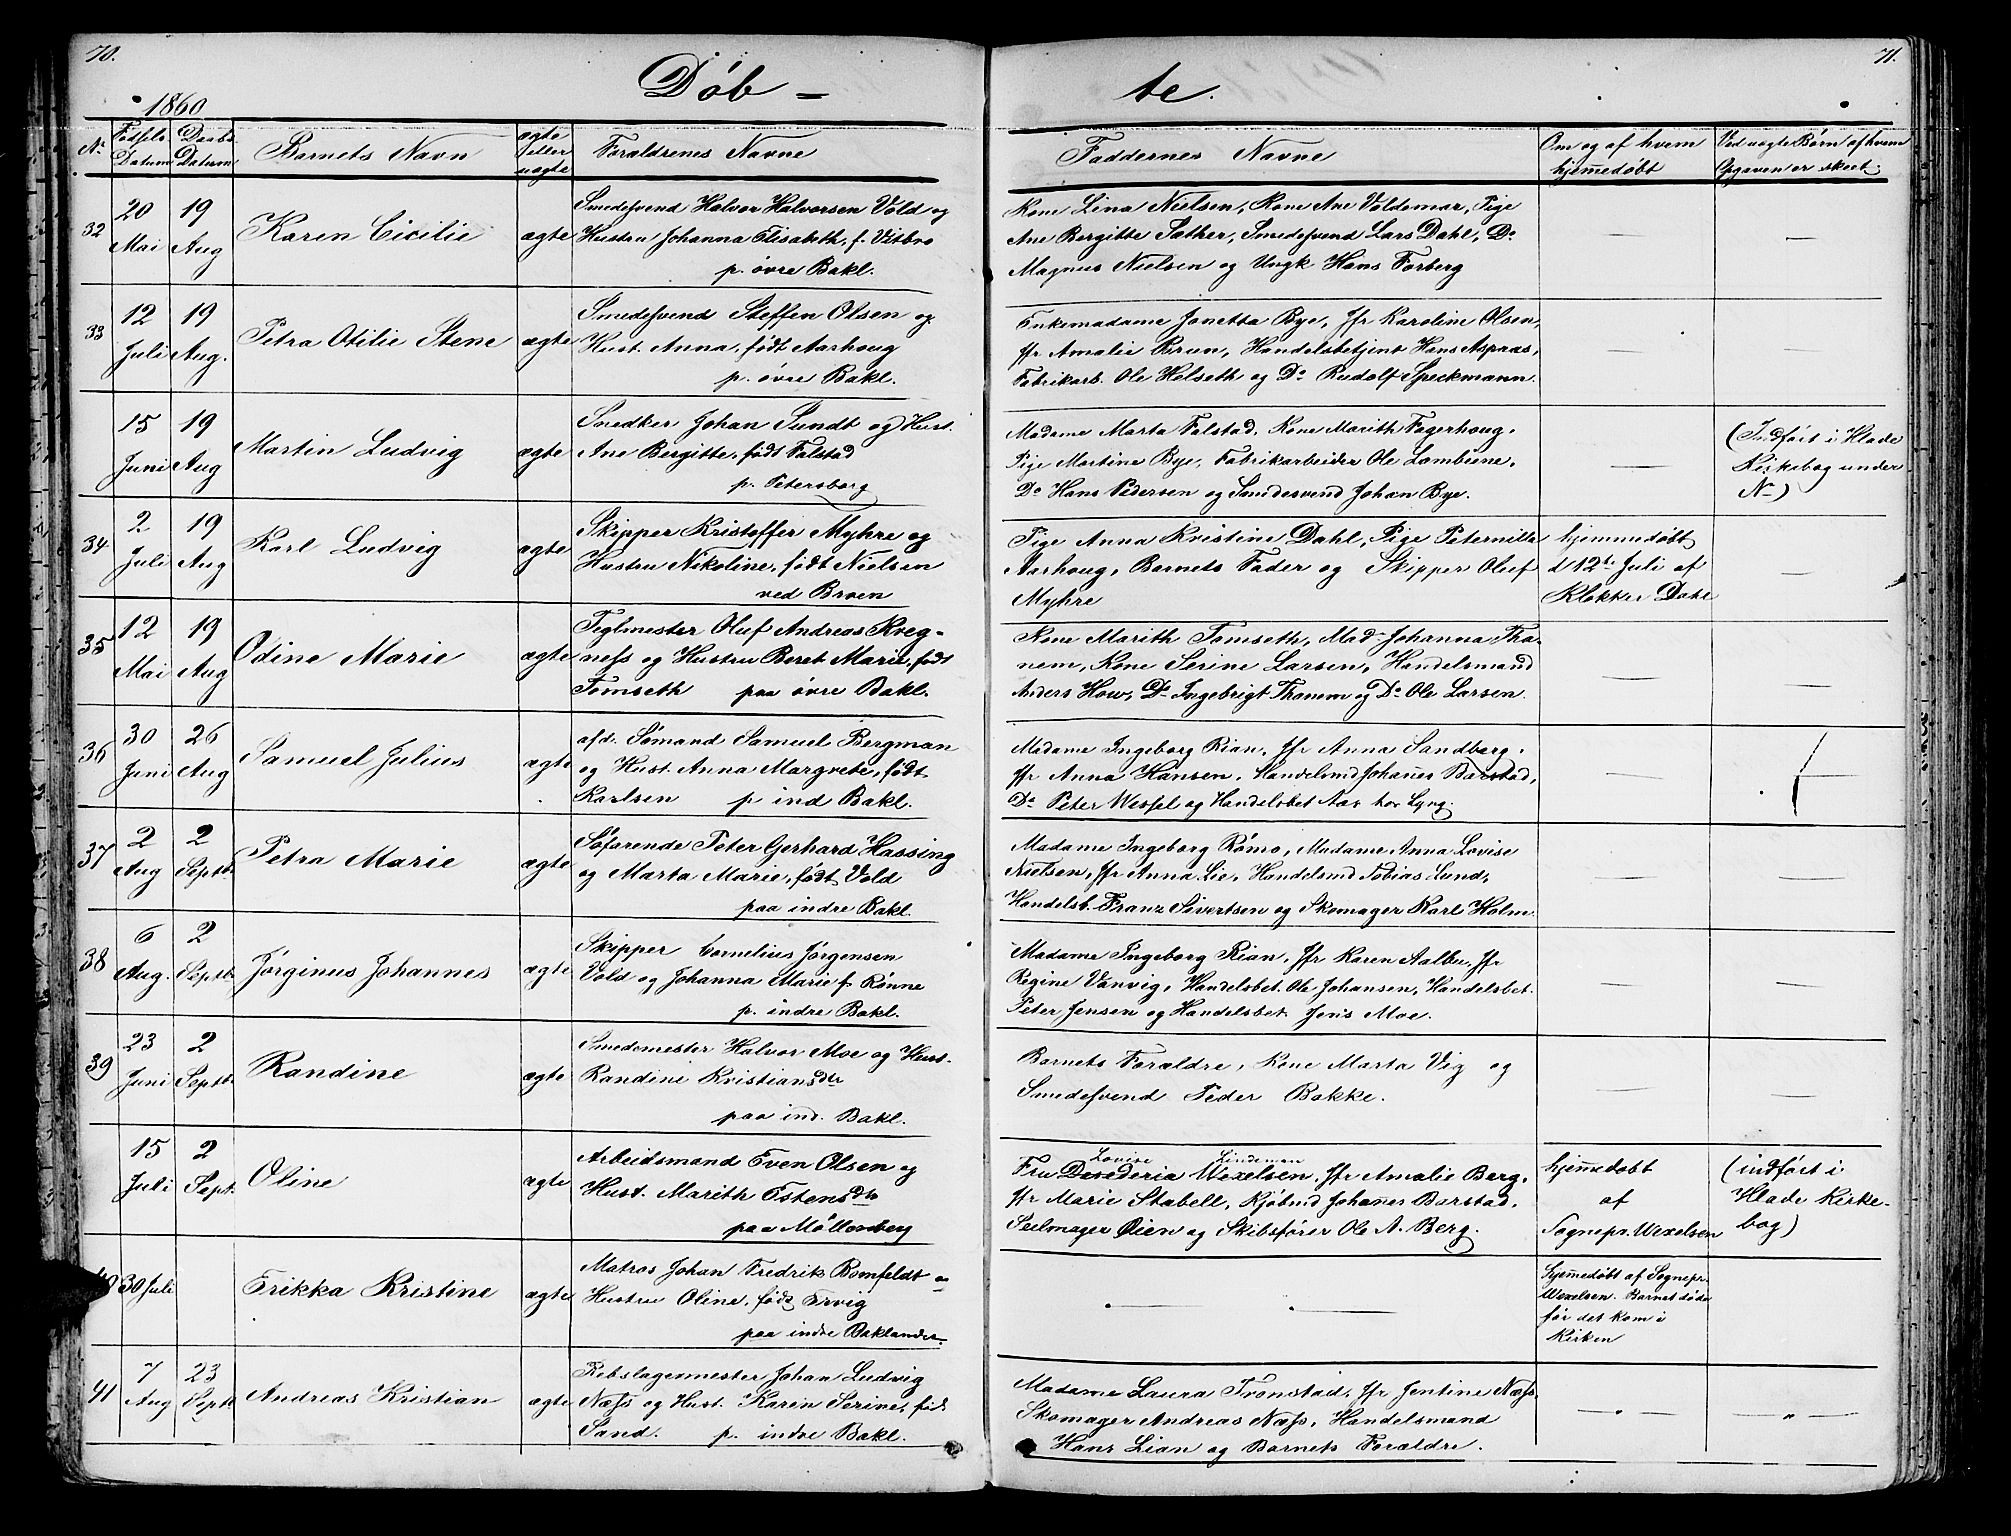 70.
71.
Döb - te.
1860
No
Fødsels Datum
Daabs Datum
Barnets Navn
ægte eller uægte
Forældrenes Navne
Faddernes Navne
Om og af hvem hjemmedøbt
Ved uægte Børn af hvem Opgaven er skeet.
32
20 Mai
19 Aug
Karen Cicilie
ægte
Smedesvend Halvor Halvorsen Vold og
Hustru Johanna Elisabeth, f. Vitbro
p. övre Bakl.
Kone Lina Nielsen, Kone Ane Voldemar, Pige
Ane Bergitte Sæther, Smedesvend Lars Dahl, Do
Magnus Nielsen og Ungk Hans Forberg
33
12 Juli
19 Aug.
Petra Otilie Stene
ægte
Smedesvend Steffen Olsen og
Hust. Anna, født Aarhoug
p. övre Bakl.
Enkemadame Jonetta Bye, Jfr Karoline Olsen,
Jfr Amalie Brun, Handelsbetjent Hans Aspaas,
Fabrikarb. Ole Helseth og Do Rudolf Speckmann.
15 Juni
19 Aug
Martin Ludvig
ægte
Snedker Johan Sundt og Hust.
Ane Bergitte, født Falstad
p. Petersborg
Madame Marta Falstad, Kone Marith Fagerhoug,
Pige Martine Bye, Fabrikarbeider Ole Lambiene,
Do Hans Pedersen og Smedesvend Johan Bye.
(Indført i Hlade
Kirkebog under
No)
34
2 Juli
19 Aug
Karl Ludvig
ægte
Skipper Kristoffer Myhre og
Hustru Nikoline, født Nielsen
ved Broen
Pige Anna Kristine Dahl, Pige Peternille
Aarhoug, Barnets Fader og Skipper Oluf
Myhre
hjemmedøbt
d 12te Juli af
Klokker Dahl
35
12 Mai
19 Aug
Odine Marie
ægte
Teglmester Oluf Andreas Kreg-
næss og Hustru Beret Marie, født
Tømseth paa övre Bakl.
Kone Marith Tømseth, Mad. Johanna Tha-
nem, Kone Serine Larsen, Handelsmand
Anders How, Do Ingebrigt Thanem og Do Ole Larsen.
36
30 Juni
26 Aug
Samuel Julius
ægte
afd. Sömand Samuel Bergman
og Hust. Anna Margrete, født
Karlsen p ind Bakl.
Madame Ingeborg Rian, Jfr Anna Sandberg,
Jfr Anna Hansen, Handelsmd Johanes Barstad,
Do Peter Wessel og Handelsbet
37
2 Aug
2 Septb.
Petra Marie
ægte
Söfarende Peter Gerhard Hassing
og Marta Marie, født Vold
paa indre Bakl.
Madame Ingeborg Römo, Madame Anna Lovise
Nielsen, Jfr Anna Lie, Handelsmd Tobias Lund,
Handelsb. Franz Sivertsen og Skomager Karl Holm
38
6 Aug.
2 Septb.
Jörginus Johannes
ægte
Skipper Cornelius Jörgensen
Vold og Johanna Marie f. Rönne
p. indre Bakl.
Madame Ingeborg Rian, Jfr Karen Aalbu, Jfr
Regine Vanvig, Handelsbet. Ole Johansen, Handelsbet.
Peter Jensen og Handelsbet Jens Moe.
39
23 Juni
2 Septb.
Randine
ægte
Smedemester Halvor Moe og Hust.
Randine Kristiansdtr
paa ind. Bakl.
Barnets Forældre, Kone Marta Vig og
Smedesvend Peder Bakke.
15 Juli
2 Sept.
Oline
ægte
Arbeidsmand Even Olsen og
Hust. Marith Estensdtr
paa Möllenberg
Lovise Lindeman
Fru Desederia Wexelsen, Jfr Amalie Berg,
Jfr Marie Stabell, Kjöbmd Johanes Barstad,
Seelmager Öien og Skibsförer Ole A. Berg.
hjemmedøbt
af
Sognepr. Wexelsen
(indført i
Hlade Kirke-
bog)
40
30 Juli
Erikka Kristine
ægte
Matros Johan Fredrik Bomfeldt og
Hustru Oline, født Ervig
paa indre Baklandet.
Hjemmedøbt af Sognepr.
Wexelsen. Barnet døde
før det kom i
Kirken
41
7 Aug
23 Septb
Andreas Kristian
ægte
Rebslagermester Johan Ludvig
Næss og Hust. Karen Serine, fød.
Sand. p. indre Bakl.
Madame Laura Trönstad, Jfr Jentine Næss,
Skomager Andreas Næss, Handelsmand
Hans Lian og Barnets Forældre.